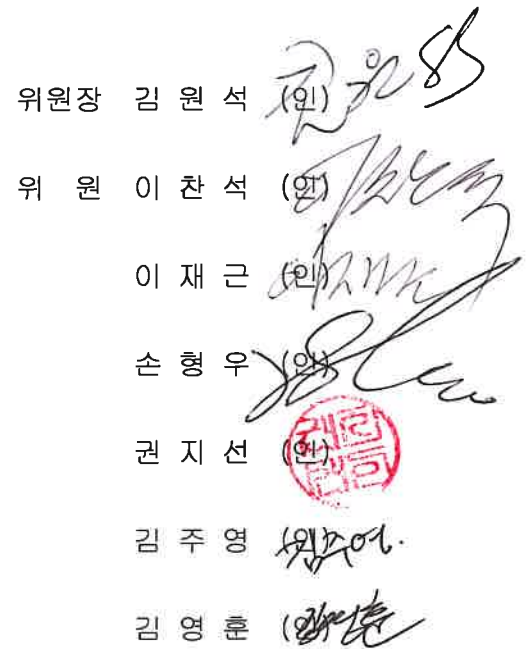 위원장 김 원 석 (인)
위 원 이 찬 석 (인)
이 재 근 (인)
손 형 우 (인)
권 지 선 (인)
김 주 영 (인)
김 영 훈 (인)